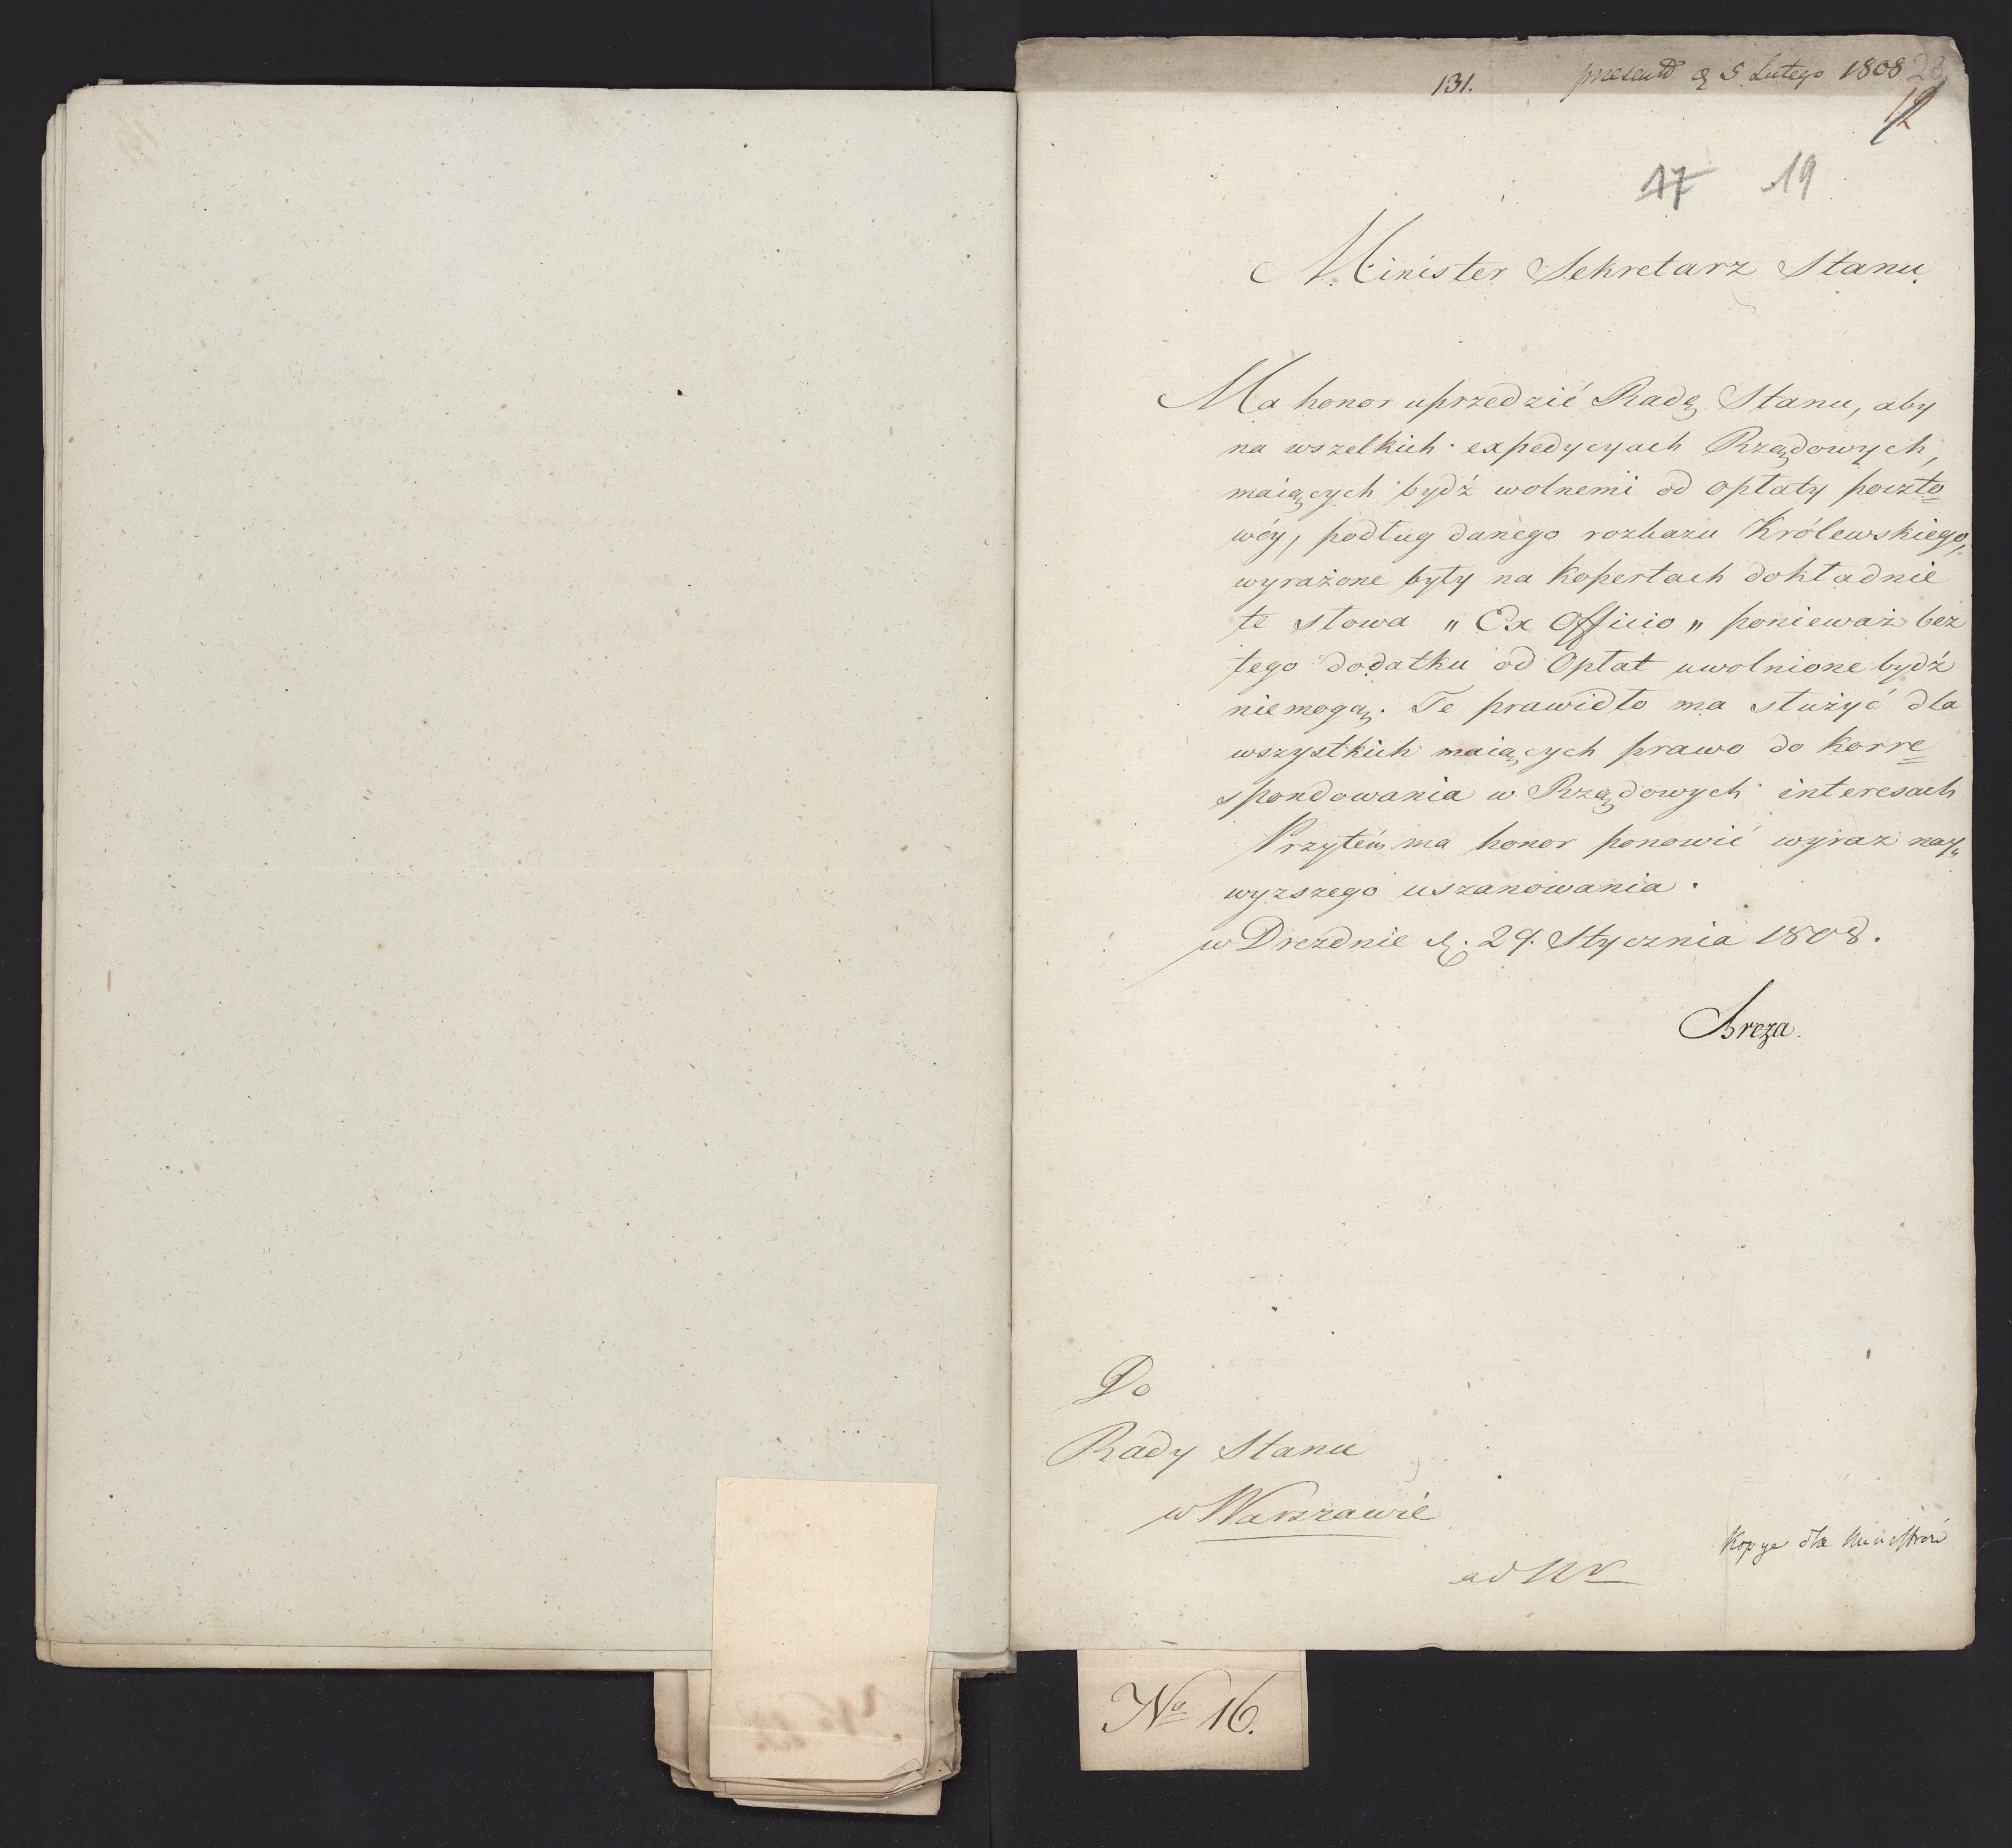 131. presentd d 5 Lutego 1808 28
12
17 19
Minister Sekretarz Stanu.
Ma honor uprzedzić Radę Stanu, aby
na wszelkich expedycyach Rządowych,
maiących bydź wolnemi od opłaty poczto=
wéy, podług danego rozkazu Królewskiego,
wyrażone były na kopertach dokładnie
te słowa „ Ex Officio „ ponieważ bez
tego dodatku od Opłat uwolnione bydź
niemogą. Te prawidło ma służyć dla
wszystkich maiących prawo do korre=
spondowania w Rządowych interesach
Przytém ma honor ponowić wyraz nay„
wyzszego uszanowania.
w Dreznie d. 29. Stycznia 1808.
Breza.
Do
Rady Stanu
w Warszawie
Kopye dla Ministrów
ad Nr
No 16.